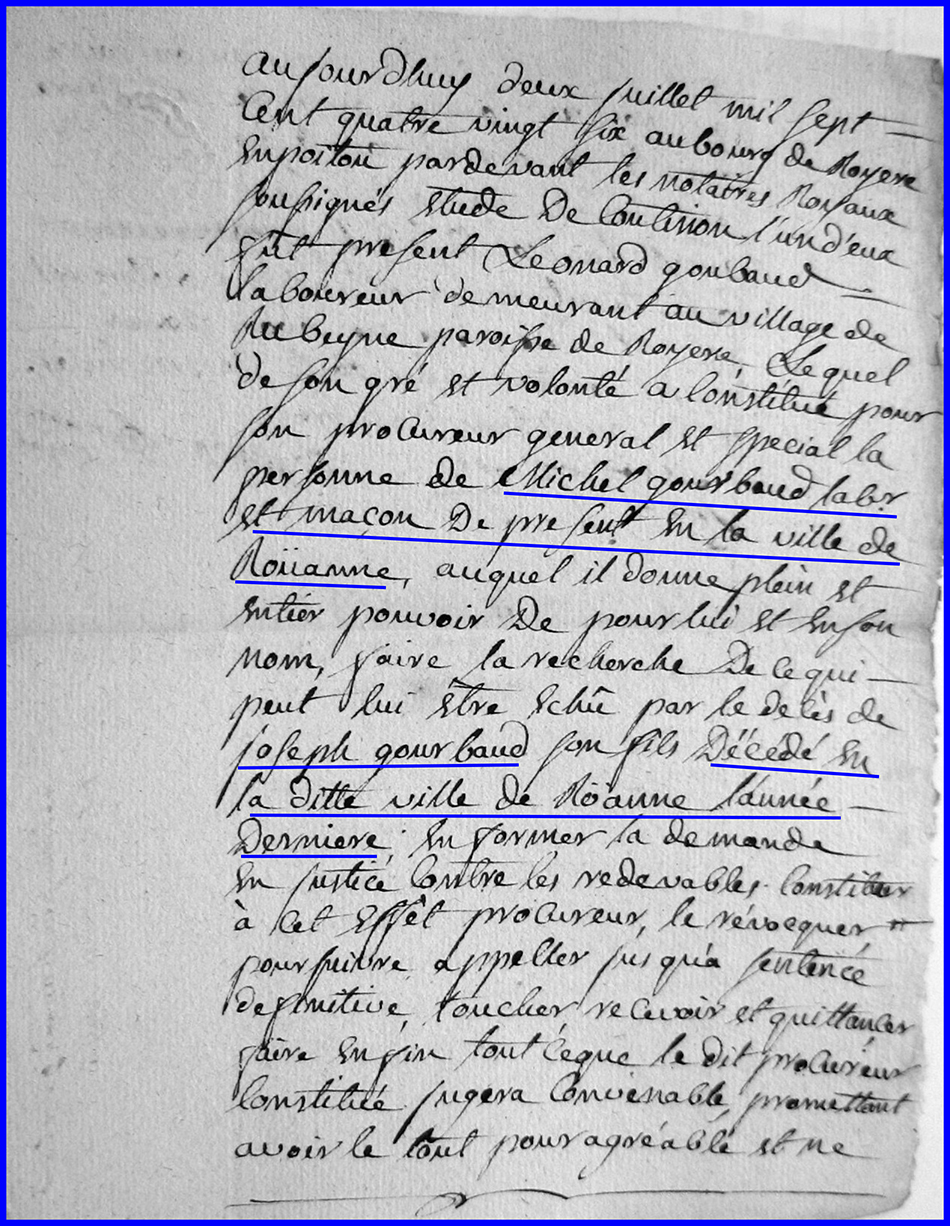 aujourdhuy deux juillet mil sept
Cent quatre vingt six au bourg de Royere
En poitou pardevant les notaires Royaux
soussignés Etude De Coutinon l'un d'eux
fut present Leonard goubaud
laboureur demeurant au village de
Rubeyne paroisse de Royere Lequel
de son gré et volonté a Constitué pour
son procureur general et special la
personne de Michel gourbaud labr
et maçon De present En la ville de
Roüanne, auquel il donne plein et
Entier pouvoir De pour lui et En son
nom, faire la recherche De ce qui
peut lui Etre Echû par le decès de
joseph gourbaud son fils Décédé En
la ditte ville de Röanne l'année
Derniere, En former la demande
En justice Contre les redevables Constituer
à Cet Effet procureur, le révocquer
poursuivre appeller jusqu'a sentence
definitive, toucher recevoir et quittancer
faire Enfin tout ceque le dit procureur
Constitué jugera Convenable, promettant
avoir le tout pour agréable et ne